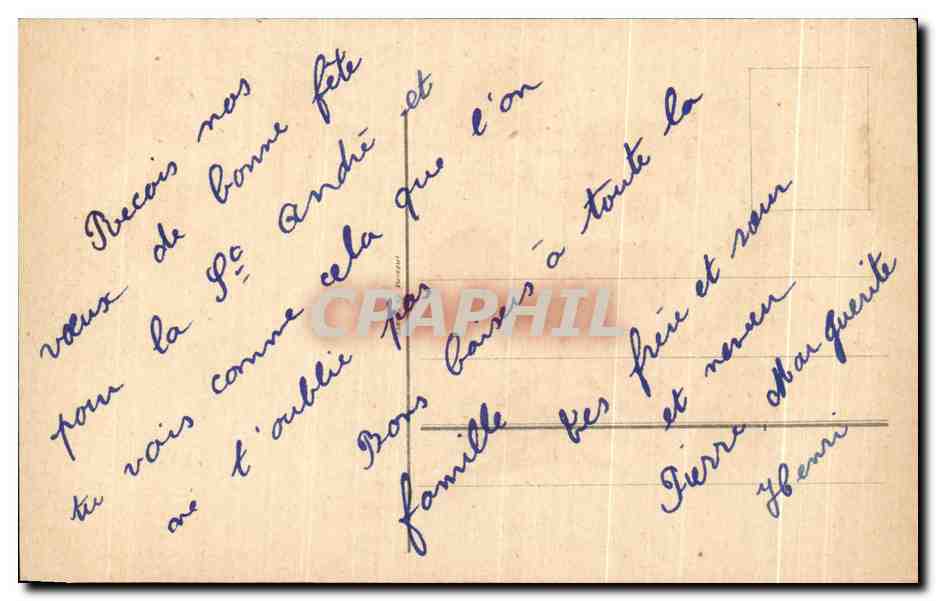 Recois nos
vœux de bonne fête
pour la St André et
tu vois comme cela que l'on
ne t'oublie pas
Bons baisers à toute la
famille tes frère et sœur
et neveu
Pierre Marguerite
Henri
CPAPHIL